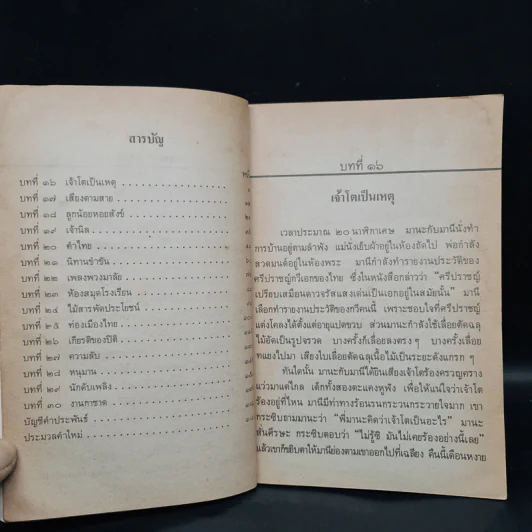 สารบัญ
บทที่ ๑๖ เจ้าโตเป็นเหตุ
บทที่ ๑๗ เสียงตามสาย
บทที่ ๑๘ ลูกน้อยหอยสังข์
บทที่ ๑๙ เจ้านิล
บทที่ ๒๐ คำไทย
บทที่ ๒๑ นิทานขำขัน
บทที่ ๒๒ เพลงพวงมาลัย
บทที่ ๒๓ ห้องสมุดโรงเรียน
บทที่ ๒๔ ไม้สารพัดประโยชน์
บทที่ ๒๕ ท่องเมืองไทย
บทที่ ๒๖ เกียรติของปิติ
บทที่ ๒๗ ความลับ
บทที่ ๒๘ หนุมาน
บทที่ ๒๙ นักดับเพลิง
บทที่ ๓๐ งานกาชาด
บัญชีคำประพันธ์
ประมวลคำใหม่
บทที่ ๑๖
เจ้าโตเป็นเหตุ
เวลาประมาณ ๒๐ นาฬิกาเศษ มานะกับมานีนั่งทำ
การบ้านอยู่ตามลำพัง แม่นั่งเย็บผ้าอยู่ในห้องถัดไป พ่อกำลัง
สวดมนต์อยู่ในห้องพระ มานีกำลังทำรายงานประวัติของ
ศรีปราชญ์กวีเอกของไทย ซึ่งในหนังสือกล่าวว่า “ศรีปราชญ์
เปรียบเสมือนดาวจรัสแสงเด่นเป็นเอกอยู่ในสมัยนั้น” มานี
เลือกทำรายงานประวัติของกวีคนนี้ เพราะชอบใจที่ศรีปราชญ์
แต่งโคลงได้ตั้งแต่อายุแปดขวบ ส่วนมานะกำลังใช้เลื่อยตัดฉลุ
ไม้อัดเป็นรูปจรวด บางครั้งก็เลื่อยลงตรง ๆ บางครั้งเลื่อย
ทแยงไปมา เสียงใบเลื่อยตัดฉลุเนื้อไม้เป็นระยะดังแกรก ๆ
ทันใดนั้น มานะกับมานีได้ยินเสียงเจ้าโตร้องครวญคราง
แว่วมาแต่ไกล เด็กทั้งสองตะแคงหูฟัง เพื่อให้แน่ใจว่าเจ้าโต
ร้องอยู่ที่ไหน มานีมีท่าทางร้อนรนกระวนกระวายใจมาก เขา
กระซิบถามมานะว่า “พี่มานะคิดว่าเจ้าโตเป็นอะไร” มานะ
สั่นศีรษะ กระซิบตอบว่า “ไม่รู้ซิ มันไม่เคยร้องอย่างนี้เลย”
แล้วเขาก็ขยิบตาให้มานีย่องตามเขาออกไปที่เฉลียง คืนนี้เดือนหงาย